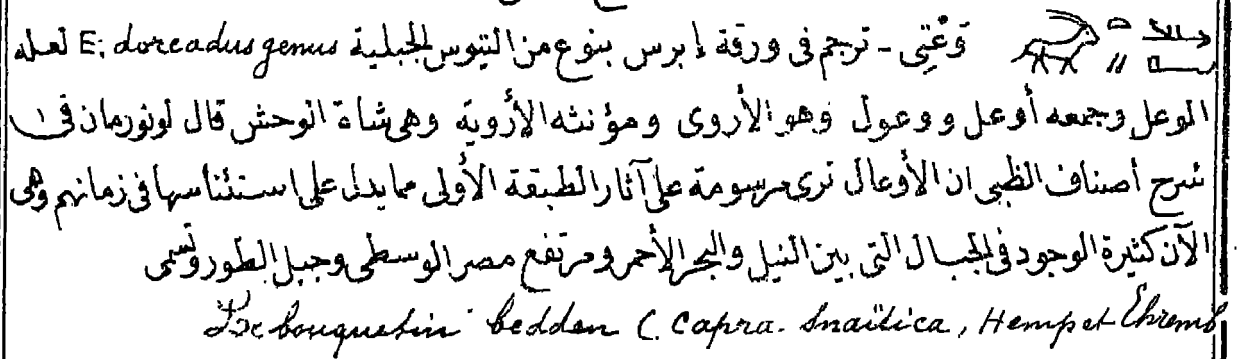 قَوعْتِى - ترجم فى ورقة إبرس بنوع من التيوس الجبلية E; doreadus genus لعله
الوعل وجمعه أوعل ووعول وهو الأروى ومؤنثه الأُرْوية وهى شاة الوحش قال لونورمان فى
شرح أصناف الظبى ان الأوعال ترى مرسومة على آثار الطبقة الأولى مما يدل على استئناسها فى زمانهم وهى
الآن كثيرة الوجود فى الجبال التى بين النيل والبحر الأحمر ومرتفع مصر الوسطى وجبل الطور وتسمى
bouquetin bedden (Capra. Snaïtica, Hemp et Ehremb